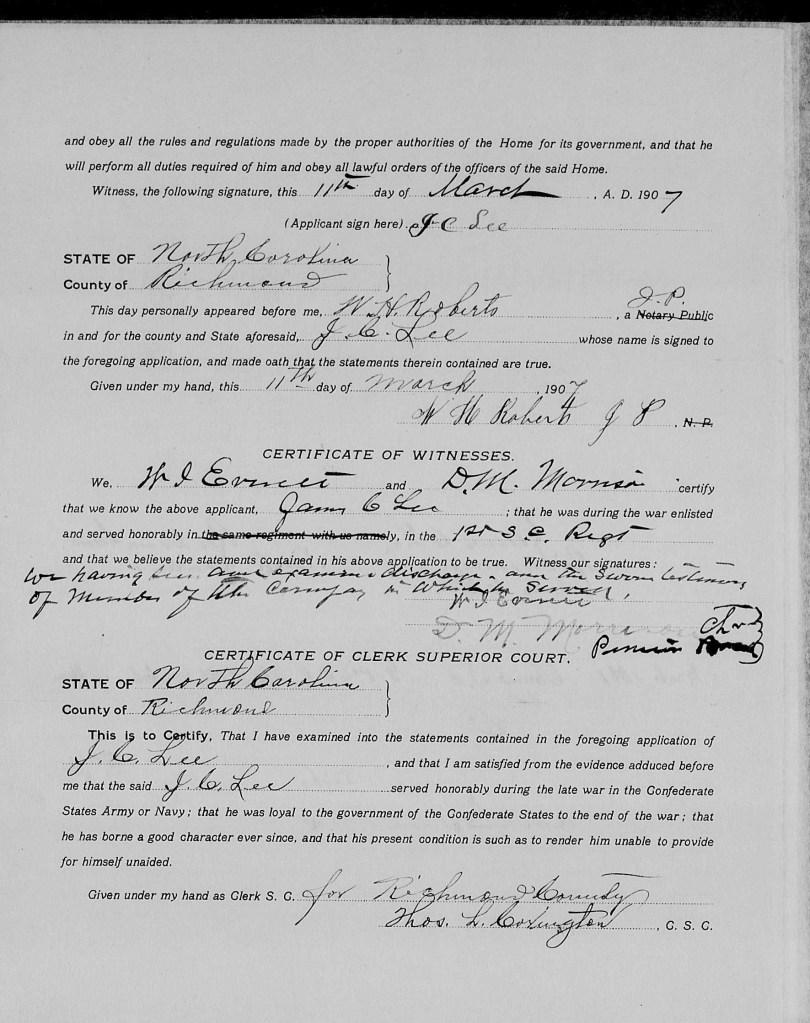 and obey all the rules and regulations made by the proper authorities of the Home for its government, and that he
will perform all duties required of him and obey all lawful orders of the officers of the said Home.
Witness, the following signature, this 11th day of March, A. D. 1907
(Applicant sign here) J C Lee
STATE OF North Carolina
County of Richmond
J. P.
This day personally appeared before me, W. H. Roberts, a Notary Public
in and for the county and State aforesaid, J. C. Lee whose name is signed to
the foregoing application, and made oath that the statements therein contained are true.
Given under my hand, this 11th day of March, 1907
W H Roberts J P, N. P.
CERTIFICATE OF WITNESSES.
We, W I Everett and D. M. Morrison certify
that we know the above applicant, James C Lee; that he was during the war enlisted
and served honorably in the same regiment with us namely, in the 1st S. C. Regt
and that we believe the statements contained in his above application to be true. Witness our signatures:
we having seen and examined discharge and the sworn testimony
of member of the Company in which he served,
W I Everett
D. M. Morrison Chr
Pension
CERTIFICATE OF CLERK SUPERIOR COURT.
STATE OF North Carolina
County of Richmond
This is to Certify, That I have examined into the statements contained in the foregoing application of
J. C. Lee, and that I am satisfied from the evidence adduced before
me that the said J. C. Lee served honorably during the late war in the Confederate
States Army or Navy; that he was loyal to the government of the Confederate States to the end of the war; that
he has borne a good character ever since, and that his present condition is such as to render him unable to provide
for himself unaided.
Given under my hand as Clerk S. C. for Richmond County
Thos. L. Covington, C. S. C.